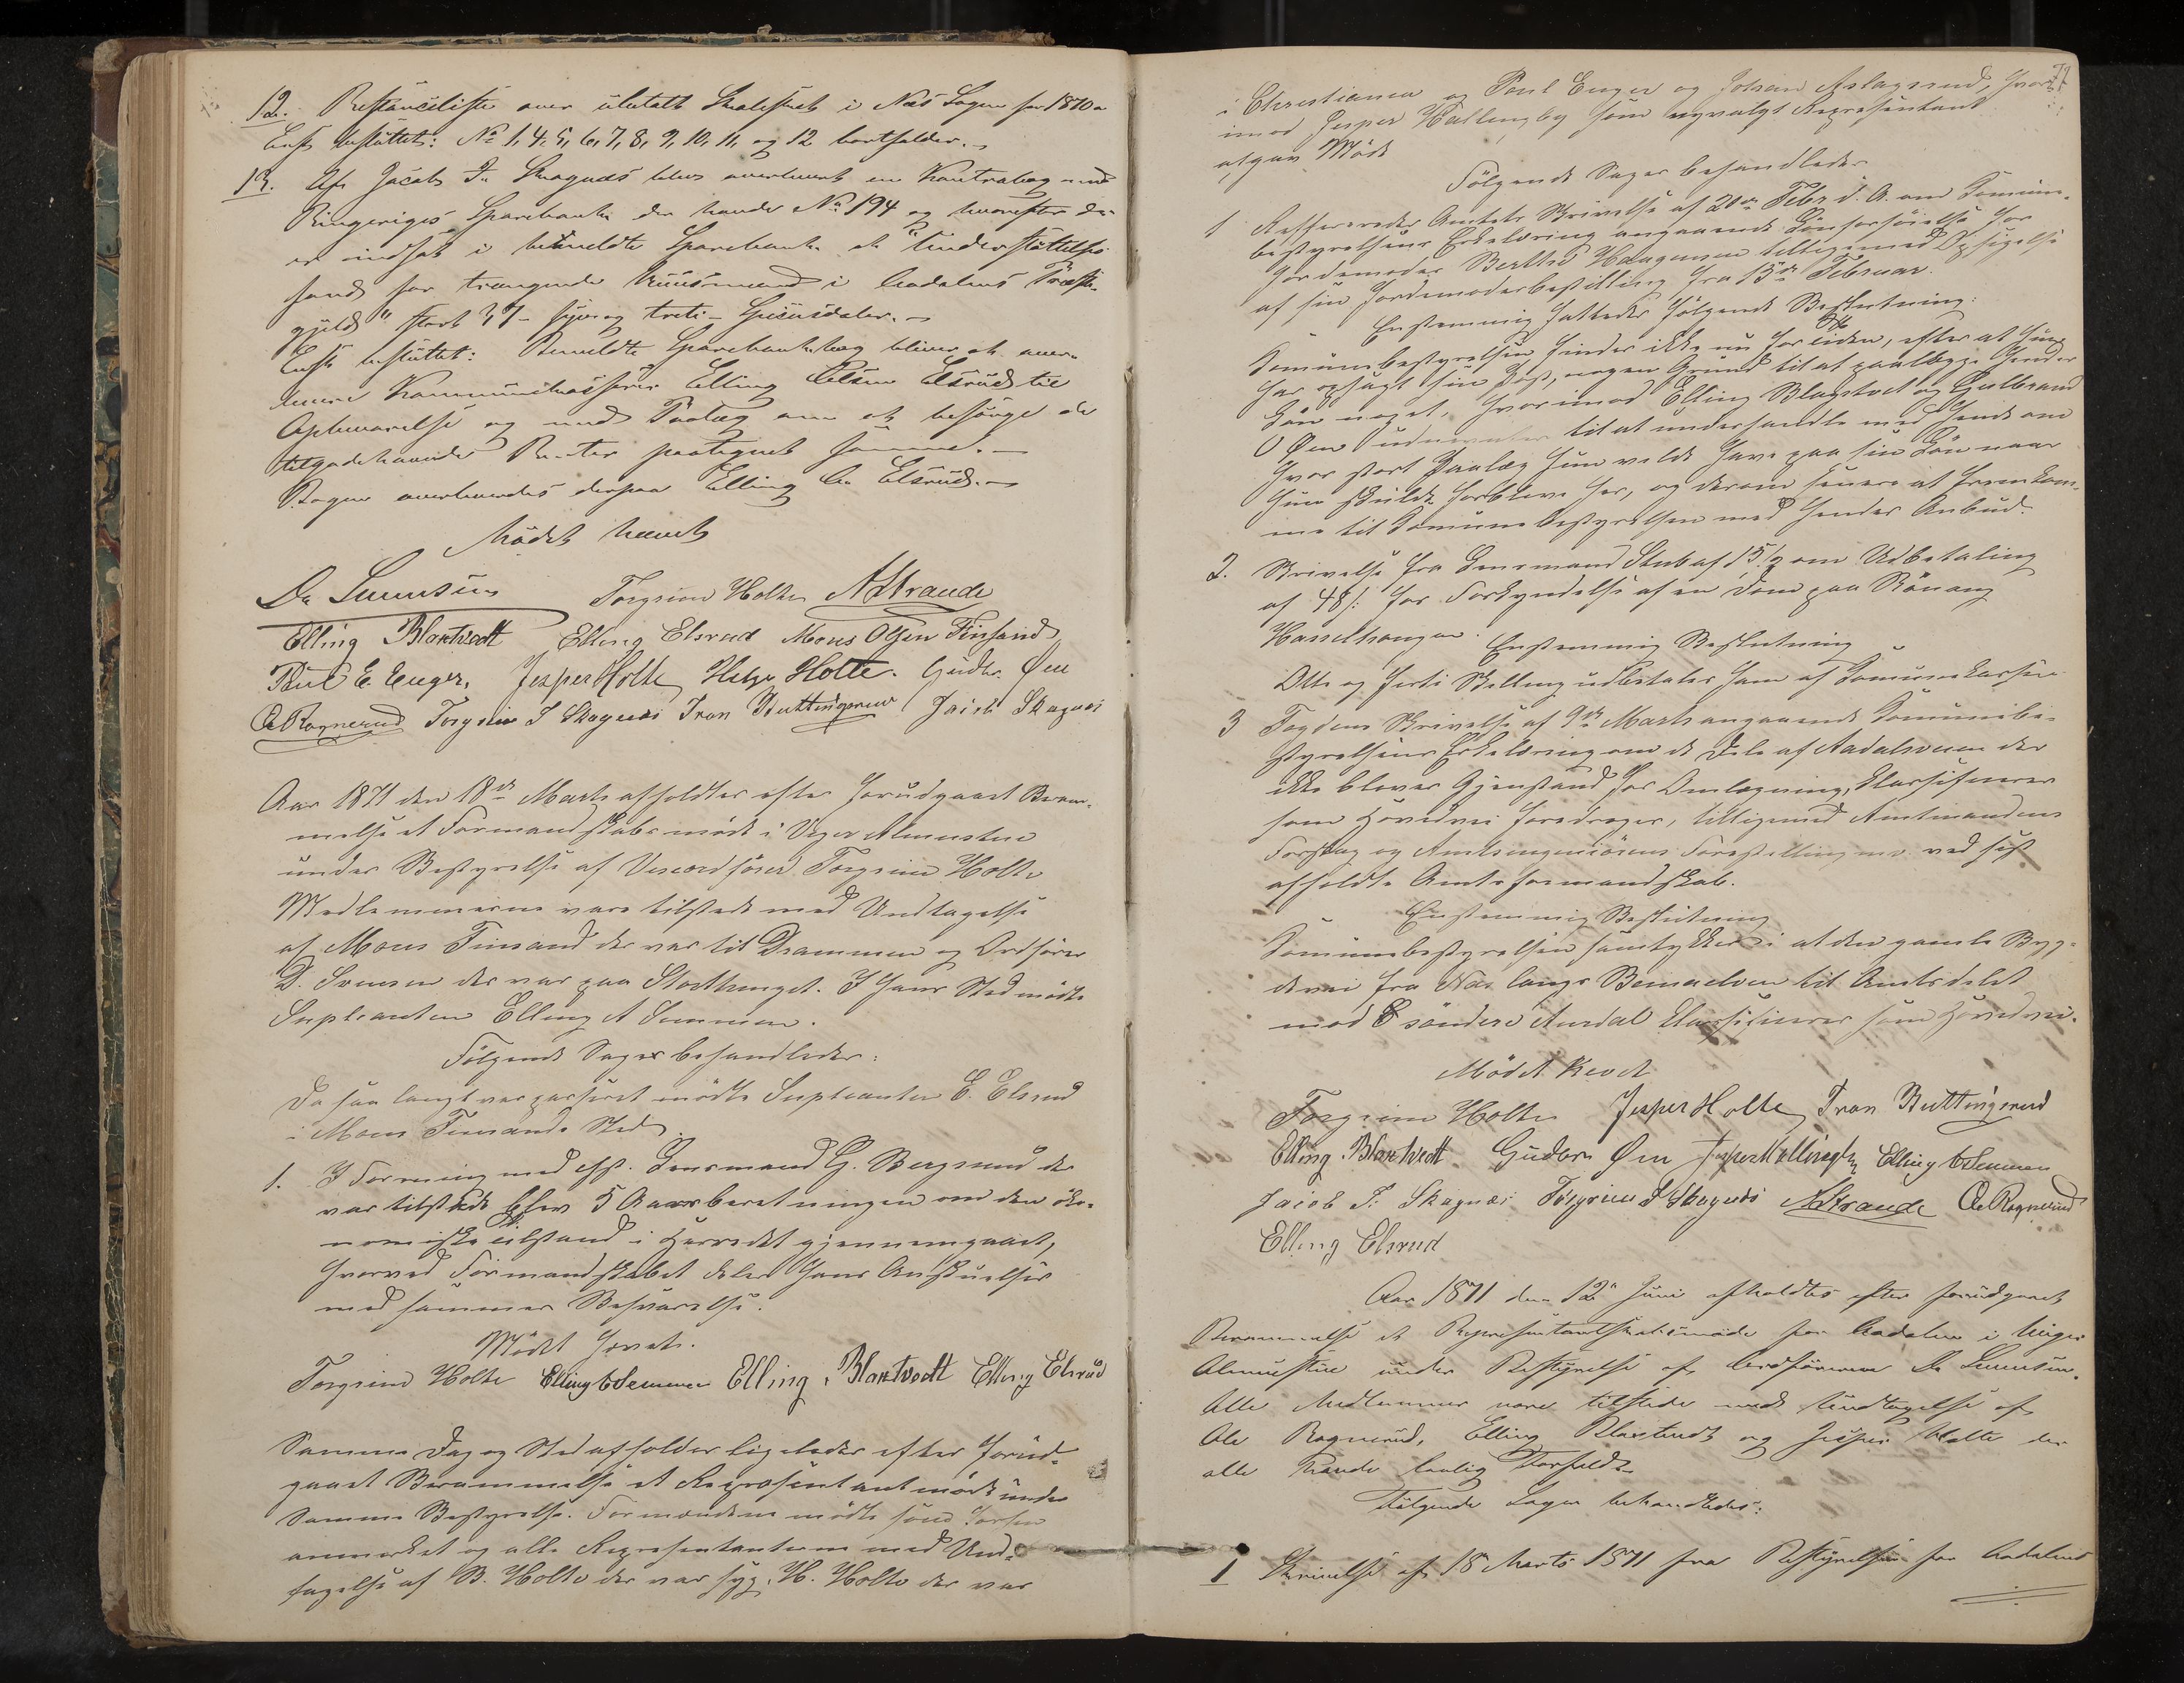 12. Restanceliste over ubetalt Skoleskat i Næs Sogn for 1870
blev besluttet: No 1, 4, 5, 6, 7, 8, 9, 10, 11, og 12 bortfalder.
13. Af Jacob T. Skagnæs blev overleveret en Contrabog med
Ringeriges Sparebank der havde No 194 og hvorefter der
er indsat i bemeldte Sparebank et "Understøttelses
fond for trængende Huusmænd i Aadalens Præste-
gjeld" stort 37 - syv og treti - Speciesdaler. -
Blev besluttet: Bemeldte Sparebankbog bliver at over-
levere Kommunekasserer Elling Olsen Elsrud til
Opbevarelse og med Paalæg om at besørge de
tilgodehavende Renter paategnet samme. -
Bogen overleveredes derpaa Elling O. Elsrud. -
Mødet hævet
D. Svensen Torgrim Holte A Strande
Elling Blaktvedt Elling Elsrud Mons Olsen Finsand
Paul E. Enger. Jesper Holte Helge Holte. Gudbr. Øen
O. Rognerud Torgrim T Skagnæs Iver Buttingsrud Jacob Skagnæs
Aar 1871 den 18de Marts afholdtes efter forudgaaet Beram-
melse et Formandskabsmøde i Viger Almustue
under Bestyrelse af Viceordfører Torgrim Holte
Medlemmerne vare tilstede med Undtagelse
af Mons Finsand der var til Drammen og Ordfører
D. Svensen der var paa Storthinget. I hans Sted mødte
Supleanten Elling A Semmen.
Følgende Sager behandledes:
Da saa langt var passeret mødte Supleanten E. Elsrud
i Mons Finsands Sted.
1. I Forening med hr. Lensmand G. Bergsund der
var tilstede blev 5 Aarsberetningen om den øko-
nomiske Tilstand i Herredet gjennemgaaet,
hvorved Formandskabet deler hans Anskuelser
med sammes Besvarelse.
Mødet hævet.
Torgrim Holte Elling A Semmen Elling Blaktvedt Elling Elsrud
Samme Dag og Sted afholdes ligeledes efter forud-
gaaet Berammelse et Repræsentantmøde under
samme Bestyrelse. Formændene mødte som forhen
anmærket og alle Repræsentanterne med Und-
tagelse af B. Holte der var syg, H. Holte der var
i Christiania og Paul Enger og Johan Aslagsrud, hvor-
imod Jesper Hallingby som nyvalgt Repræsentant
afgav Møde
Følgende Sager behandledes
1 Reffereredes Amtets Skrivelse af 20de Febr d. A. om Komune-
bestyrelsens Erklæring angaaende Lønforhøielse for
Jordemoder Berthe Haagensen tilligemed Opsigelse
af sin Jordemoderbestilling fra 13de Februar.
Enstemmig fattedes følgende Beslutning:
Komunebestyrelsen finder ikke nu for Tiden, efter at hun
har opsagt sin Post, nogen Grund til at paalægge hendes
Løn noget, hvorimod Elling Blaktvet og Gulbrand
O Øen udnævntes til at underhandle med hende om
hvor stort Paalæg hun vilde have paa sin Løn naar
hun skulde forblive her, og derom senere at fremkom-
me til Komunebestyrelsen med hendes Anbud.
2. Skrivelse fra Lensmand Stub af 15/2 om Udbetaling
af 48 s: for Forkyndelse af en Dom paa Rønaug
Hasselhaugen.
Enstemmig Beslutning
Otte og forti Skilling udbetales ham af Komunekassen
3 Fogdens Skrivelse af 9de Marts angaaende Komunebe-
styrelsens Erklæring om de Dele af Aadalsveien der
ikke bliver Gjenstand for Omlægning, klassificeres
som Hovedvei foredrages, tilligemed Amtmandens
Forslag og Amtsingeniørens Forestilling m. v. ved sidst
afholdte Amtsformandskab.
Enstemmig Beslutning
Komunebestyrelsen samtykker i at den gamle Byg-
devei fra Næs langs Beinaelven til Amtsdelet
mod Søndre Aurdal klassificeres som Hovedvei.
Mødet hævet
Torgrim Holte Jesper Holte Iver Buttingsrud
Elling Blaktvedt Gudbr. Øen Jesper Hallingby Elling A Semmen
Jacob T. Skagnæs Torgrim T Skagnæs A Strande O. Rognerud
Elling Elsrud
Aar 1871 den 12te Juni afholdtes efter forudgaaet
Berammelse et Representantskabsmøde for Aadalen i Viger
Almuestue under Bestyrelse af Ordføreren D. Svensen.
Alle Medlemmer vare tilstede med Undtagelse af
Ole Rognerud, Elling Blaktvedt og Jesper Holte der
alle havde lovlig Forfald.
Følgende Sager behandledes:
1 Skrivelse af 18 Marts 1871 fra Bestyrelsen for Aadalens